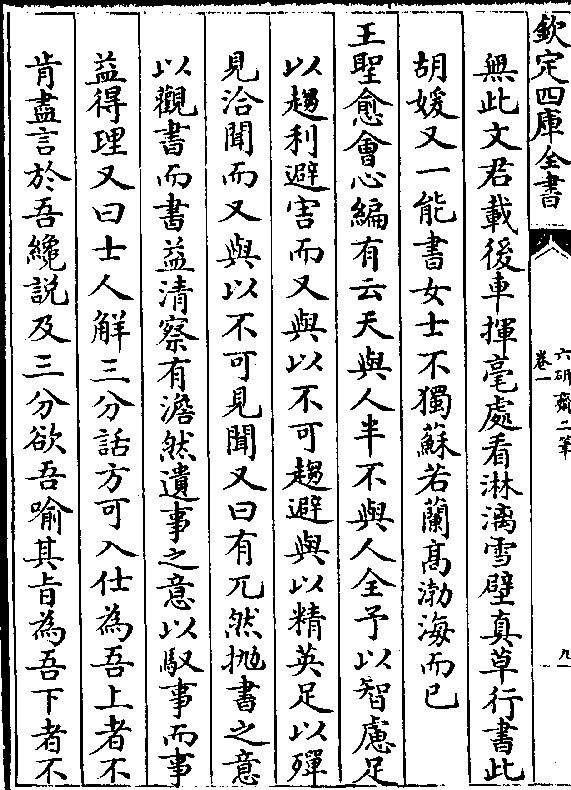 欽定四庫全書
六研齋二筆
卷一
九
無此文君載後車揮毫處看淋漓雪壁真草行書此
胡媛又一能書女士不獨蘇若蘭髙渤海而已
王聖愈㑹心編有云天與人半不與人全予以智慮足
以趨利避害而又與以不可趨避與以精英足以殫
見洽聞而又與以不可見聞又曰有兀然抛書之意
以觀書而書益清察有澹然遺事之意以馭事而事
益得理又曰士人解三分話方可入仕為吾上者不
肯盡言於吾纔説及三分欲吾喻其旨為吾下者不